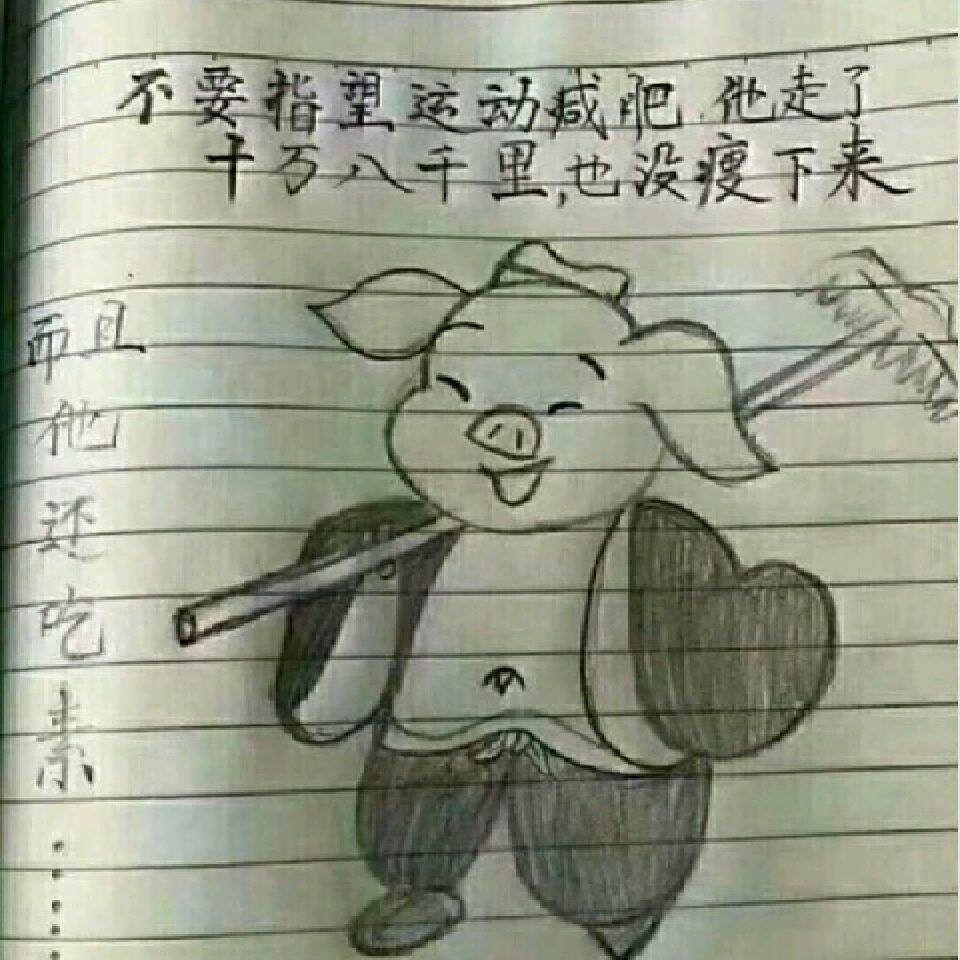 不要指望运动减肥.他走了
十万八千里,也没瘦下来
而且他还吃素.....